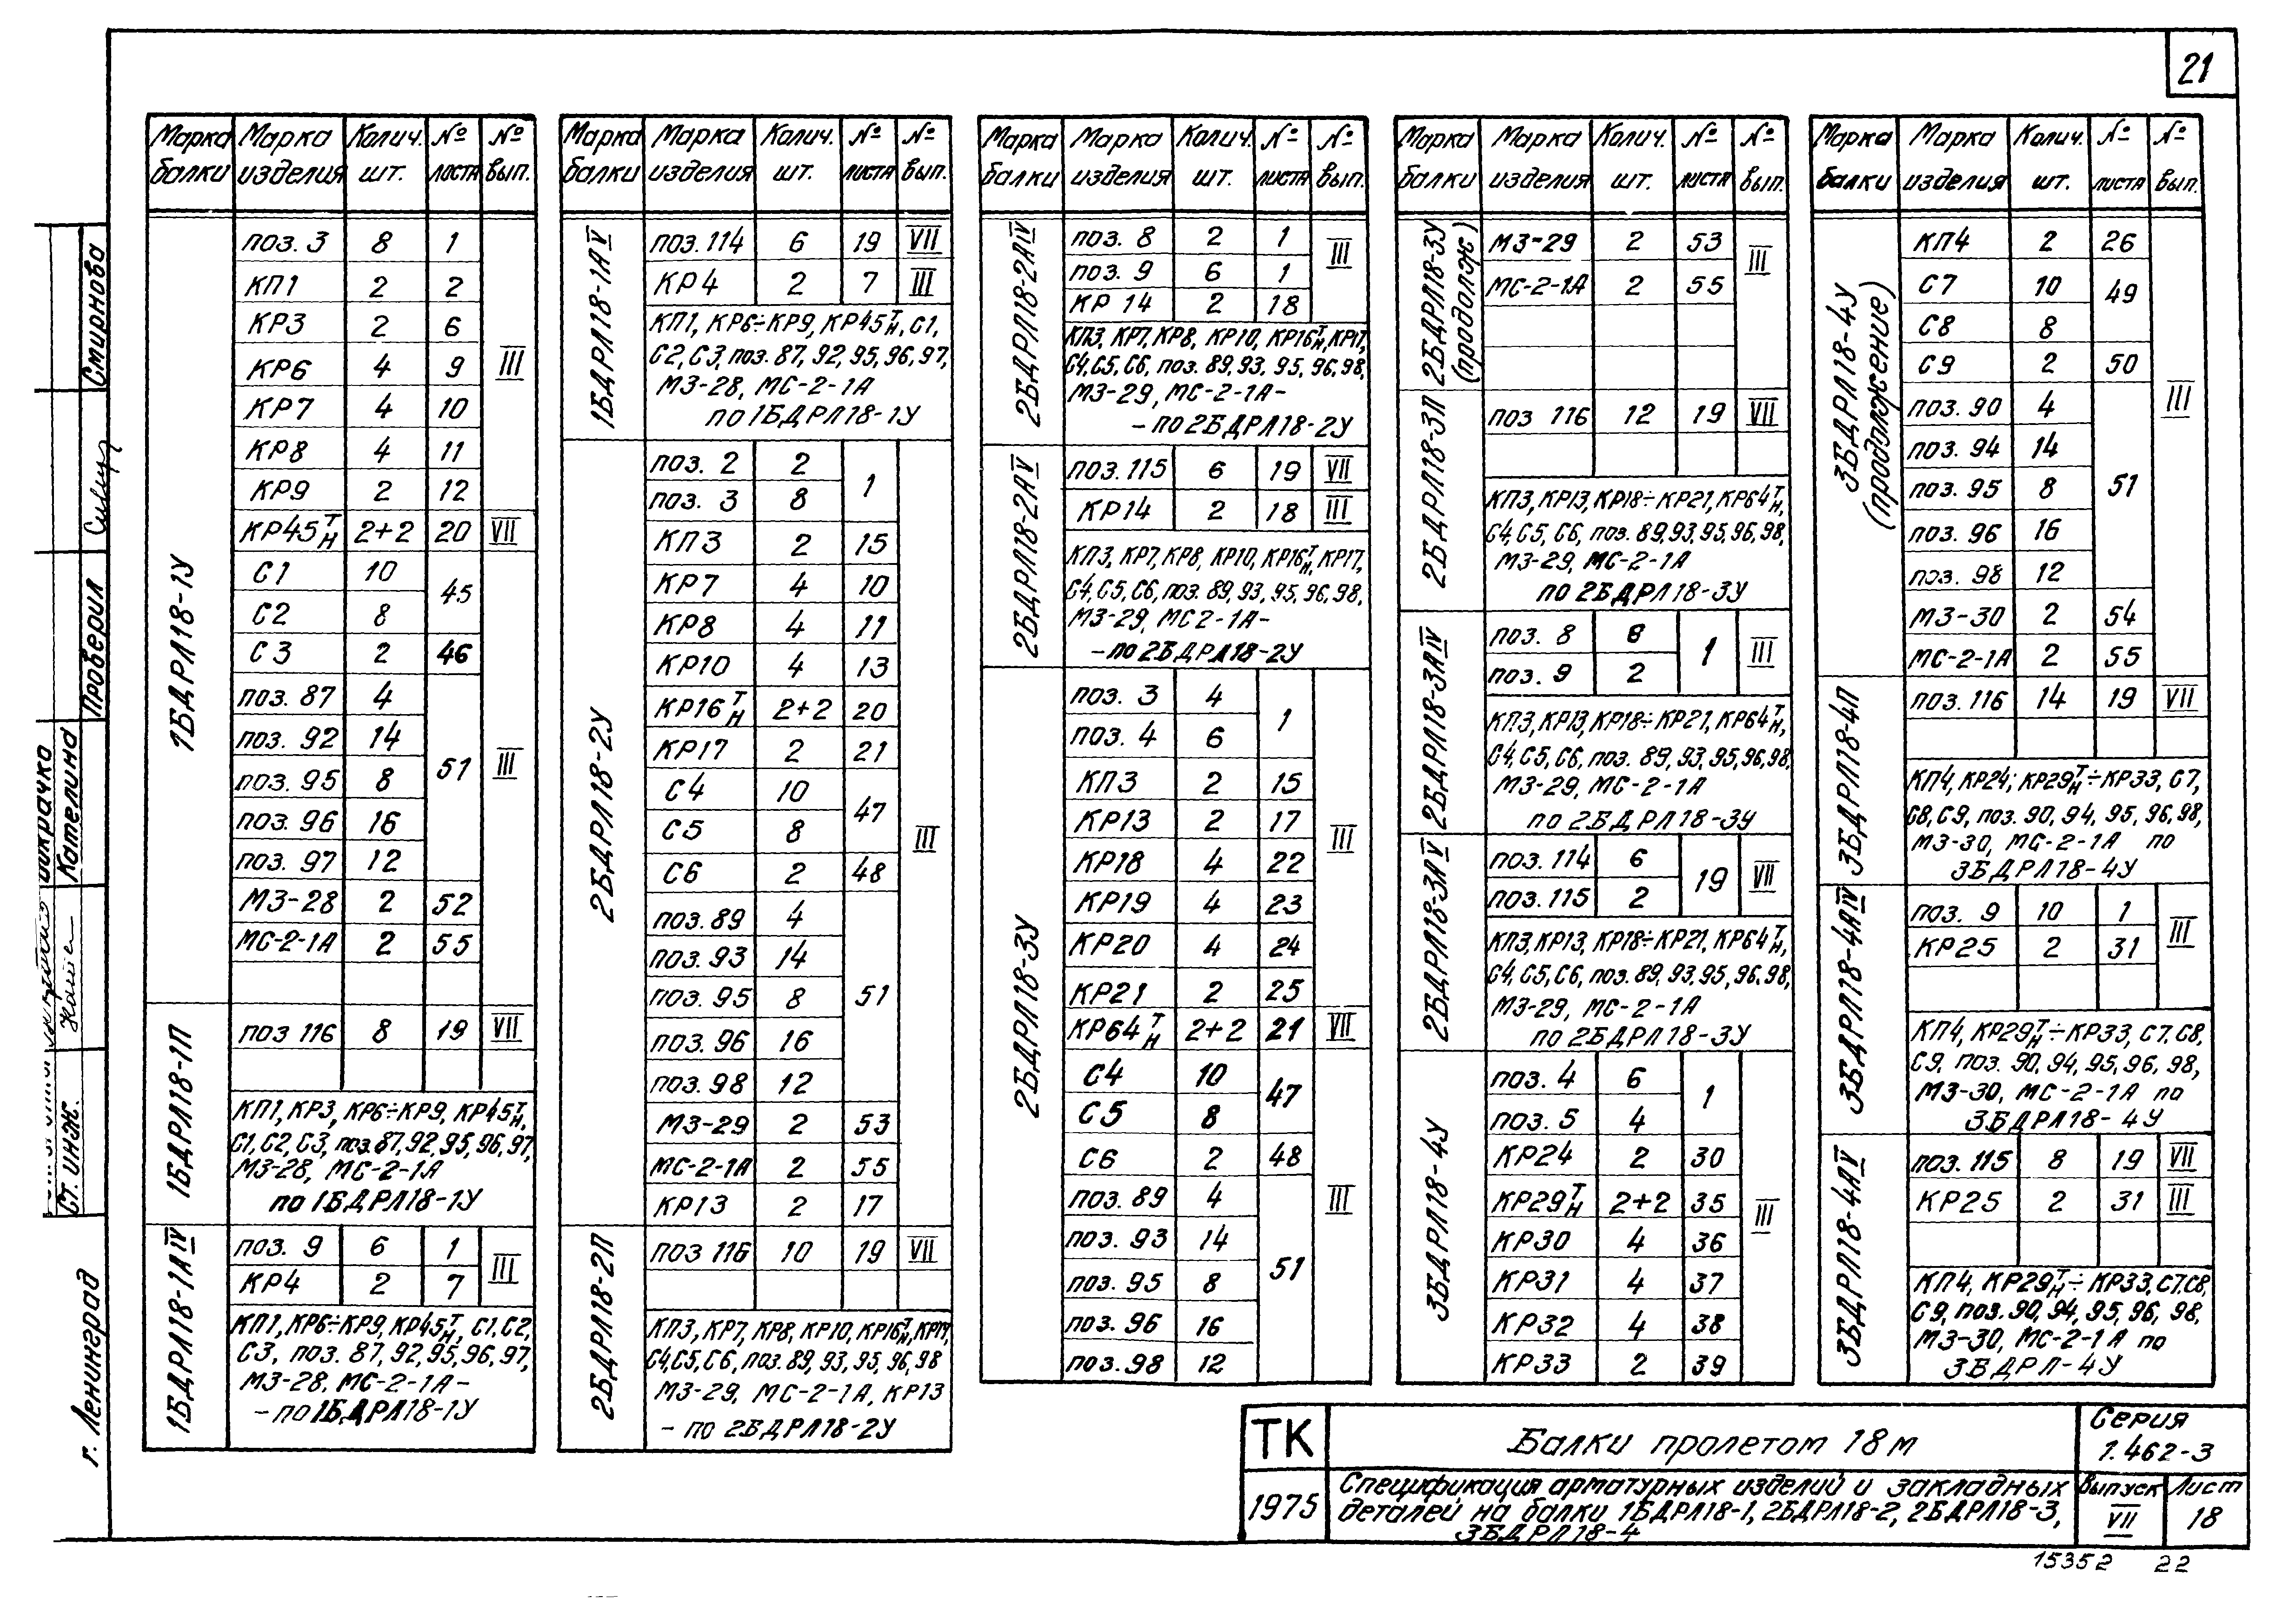 21
Марка балки Марка изделия Колич. шт. № листа № вып.
1БДРЛ18-1У
поз. 3 8 1 III
КП1 2 2
КР3 2 6
КР6 4 9
КР7 4 10
КР8 4 11
КР9 2 12
КР45 Т Н 2+2 20 VII
С1 10 45 III
С2 8
С3 2 46
поз. 87 4 51
поз. 92 14
поз. 95 8
поз. 96 16
поз. 97 12
МЗ-28 2 52
МС-2-1А 2 55
1БДРЛ18-1П
поз 116 8 19 VII
КП1, КР3, КР6÷КР9, КР45 Т Н,
С1, С2, С3, поз. 87, 92, 95, 96, 97,
МЗ-28, МС-2-1А
по 1БДРЛ18-1У
1БДРЛ18-1АIV
поз. 9 6 1 III
КР4 2 7
КП1, КР6÷КР9, КР45 Т Н, С1, С2,
С3, поз. 87, 92, 95, 96, 97,
МЗ-28, МС-2-1А-
- по 1БДРЛ18-1У
Марка балки Марка изделия Колич. шт. № листа № вып.
1БДРЛ18-1АV
поз. 114 6 19 VII
КР4 2 7 III
КП1, КР6÷КР9, КР45 Т Н, С1,
С2, С3, поз. 87, 92, 95, 96, 97,
МЗ-28, МС-2-1А
по 1БДРЛ18-1У
2БДРЛ18-2У
поз. 2 2 1 III
поз. 3 8
КП3 2 15
КР7 4 10
КР8 4 11
КР10 4 13
КР16 Т Н 2+2 20
КР17 2 21
С4 10 47
С5 8
С6 2 48
поз. 89 4 51
поз. 93 14
поз. 95 8
поз. 96 16
поз. 98 12
МЗ-29 2 53
МС-2-1А 2 55
КР13 2 17
2БДРЛ18-2П
поз 116 10 19 VII
КП3, КР7, КР8, КР10, КР16 Т Н, КР17,
С4, С5, С6, поз. 89, 93, 95, 96, 98
МЗ-29, МС-2-1А, КР13
- по 2БДРЛ18-2У
Марка балки Марка изделия Колич. шт. № листа № вып.
2БДРЛ18-2АIV
поз. 8 2 1 III
поз. 9 6 1
КР 14 2 18
КП3, КР7, КР8, КР10, КР16 Т Н, КР17,
С4, С5, С6, поз. 89, 93, 95, 96, 98,
МЗ-29, МС-2-1А-
- по 2БДРЛ18-2У
2БДРЛ18-2АV
поз. 115 6 19 VII
КР14 2 18 III
КП3, КР7, КР8, КР10, КР16 Т Н, КР17,
С4, С5, С6, поз. 89, 93, 95, 96, 98,
МЗ-29, МС2-1А-
- по 2БДРЛ18-2У
2БДРЛ18-3У
поз. 3 4 1 III
поз. 4 6
КП3 2 15
КР13 2 17
КР18 4 22
КР19 4 23
КР20 4 24
КР21 2 25
КР64 Т Н 2+2 21 VII
С4 10 47 III
С5 8
С6 2 48
поз. 89 4 51
поз. 93 14
поз. 95 8
поз. 96 16
поз. 98 12
Марка балки Марка изделия Колич. шт. № листа № вып.
2БДРЛ18-3У (продолж)
МЗ-29 2 53 III
МС-2-1А 2 55
2БДРЛ18-3П
поз 116 12 19 VII
КП3, КР13, КР18÷КР21, КР64 Т Н,
С4, С5, С6, поз. 89, 93, 95, 96, 98,
МЗ-29, МС-2-1А
по 2БДРЛ18-3У
2БДРЛ18-3АIV
поз. 8 6 1 III
поз. 9 2
КП3, КР13, КР18÷КР21, КР64 Т Н,
С4, С5, С6, поз. 89, 93, 95, 96, 98,
МЗ-29, МС-2-1А
по 2БДРЛ18-3У
2БДРЛ18-3АV
поз. 114 6 19 VII
поз. 115 2
КП3, КР13, КР18÷КР21, КР64 Т Н,
С4, С5, С6, поз. 89, 93, 95, 96, 98,
МЗ-29, МС-2-1А
по 2БДРЛ18-3У
3БДРЛ18-4У
поз. 4 6 1 III
поз. 5 4
КР24 2 30
КР29 Т Н 2+2 35
КР30 4 36
КР31 4 37
КР32 4 38
КР33 2 39
Марка балки Марка изделия Колич. шт. № листа № вып.
3БДРЛ18-4У (продолжение)
КП4 2 26 III
С7 10 49
С8 8
С9 2 50
поз. 90 4 51
поз. 94 14
поз. 95 8
поз. 96 16
поз. 98 12
МЗ-30 2 54
МС-2-1А 2 55
3БДРЛ18-4П
поз. 116 14 19 VII
КП4, КР24; КР29 Т Н÷КР33, С7,
С8, С9, поз. 90, 94, 95, 96, 98,
МЗ-30, МС-2-1А по
3БДРЛ18-4У
3БДРЛ18-4АIV
поз. 9 10 1 III
КР25 2 31
КП4, КР29 Т Н÷КР33, С7, С8,
С9, поз. 90, 94, 95, 96, 98,
МЗ-30, МС-2-1А по
3БДРЛ18-4У
3БДРЛ18-4АV
поз. 115 8 19 VII
КР25 2 31 III
КП4, КР29 Т Н÷КР33, С7, С8,
С9, поз. 90, 94, 95, 96, 98,
МЗ-30, МС-2-1А по
3БДРЛ-4У
Смирнова
Проверил
Кателина
Ст. инж.
г. Ленинград
ТК
1975
Балки пролетом 18м
Спецификация арматурных изделий и закладных
деталей на балки 1БДРЛ18-1, 2БДРЛ18-2, 2БДРЛ18-3,
3БДРЛ18-4
Серия
1.462-3
Выпуск Лист
VII 18
15352 22